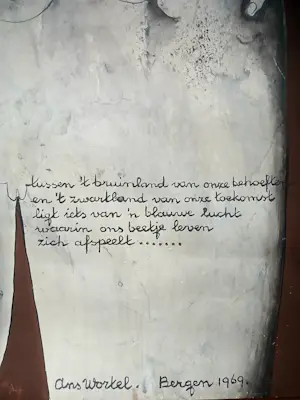 tussen 't bruinland van onze behoeften
en 't zwartland van onze toekomst
ligt iets van 'n blauwe lucht
waarin ons beetje leven
zich afspeelt.......
Ans Wortel. Bergen 1969.